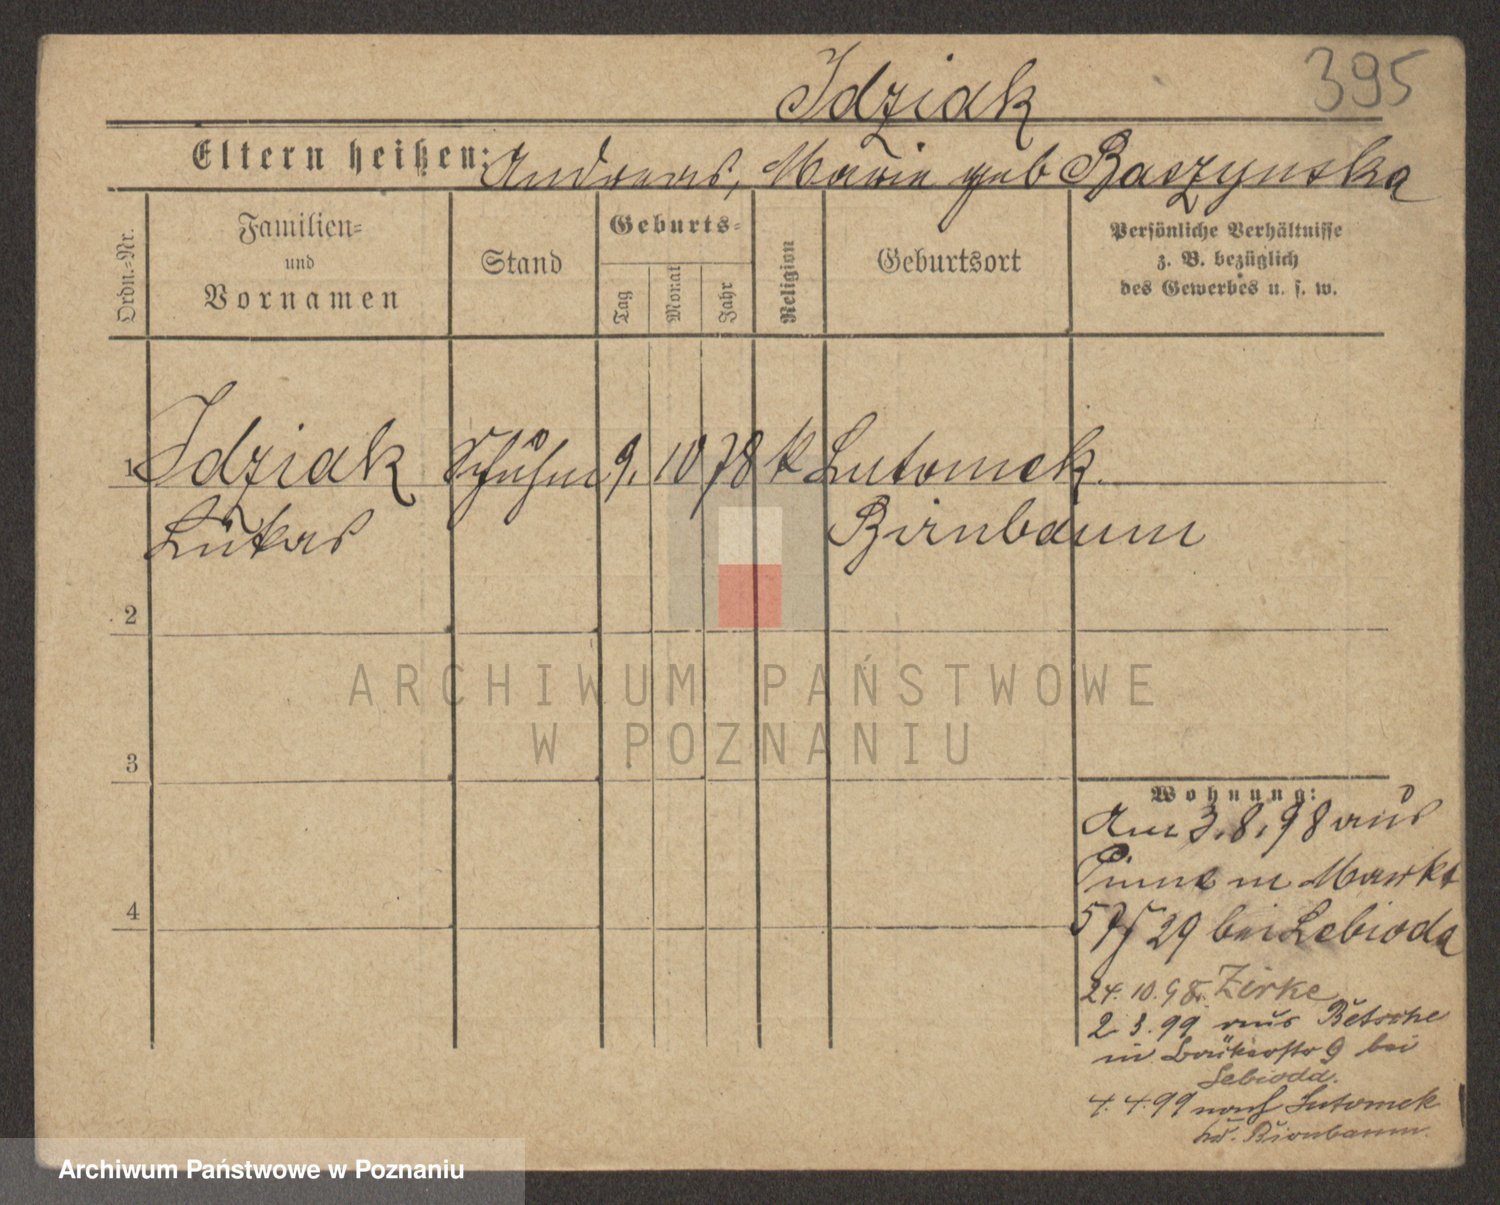 395
Idziak
Eltern heißen: Andreas, Marie geb Baszynska
Ordn.-Nr.
Familien-
und
Vornamen
Stand
Geburts-
Tag
Monat
Jahr
Religion
Geburtsort
Persönliche Verhältnisse
z. B. bezüglich
des Gewerbes u. s. w.
1 Idziak 9. 10 78 k Lutomek
Lukas Birnbaum
2
3
4
Wohnung:
Am 3.8.98 aus
Pinne in Markt
29 bei Lebioda
24.10.98. Zirke
2.3.99 aus Betsche
in 9 bei
Lebioda.
4.4.99 nach Lutomek
Birnbaum.
ARCHIWUM PAŃSTWOWE
W POZNANIU
Archiwum Państwowe w Poznaniu